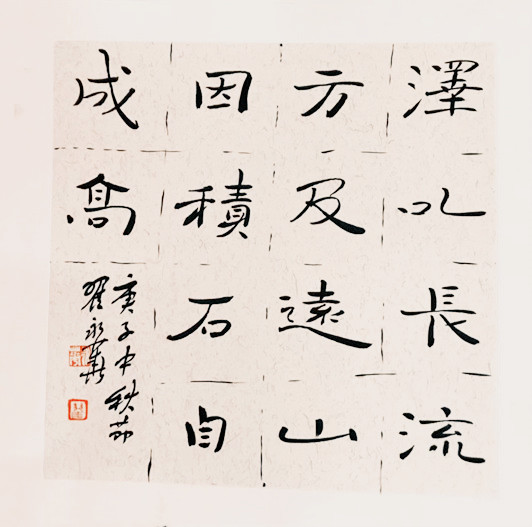 澤以長流
方及遠山
因積石自
成髙
庚子中秋节
翟永